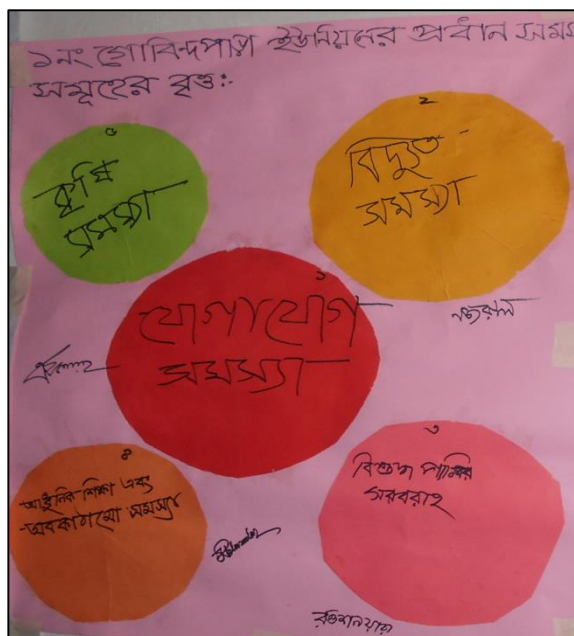 ১নং গোবিন্দপাড়া ইউনিয়নের প্রধান সমস
সমূহের বৃত্ত:-
৫
কৃষি
সমস্যা
২
বিদ্যুত
সমস্যা
১
যোগাযোগ
সমস্যা
নজরুল
৪
আধুনিক শিক্ষা এবং
অবকাঠামো সমস্যা
৩
বিশুদ্ধ পানির
সরবরাহ